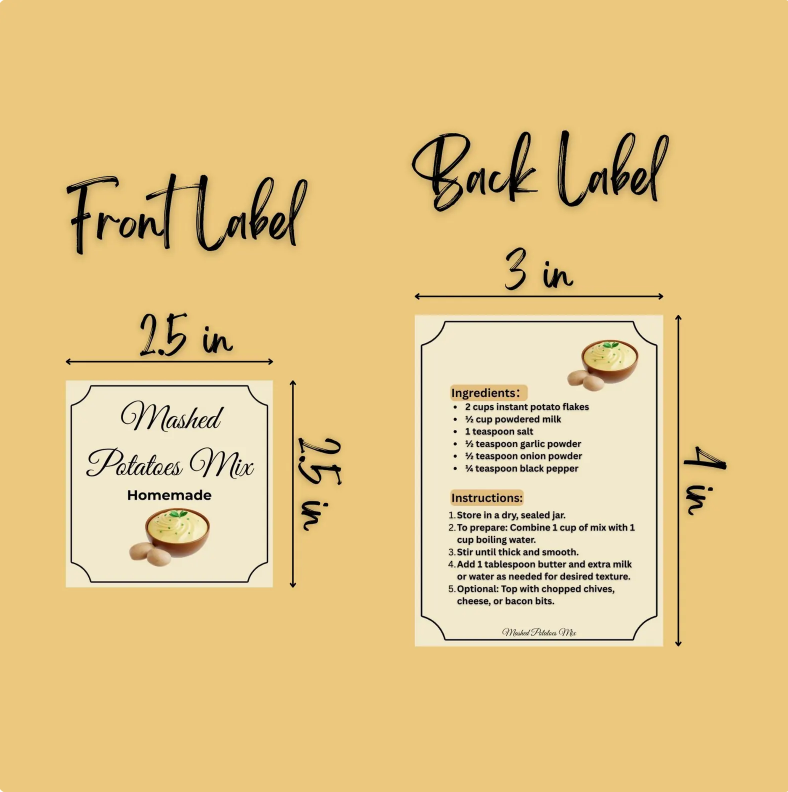 Front Label
Back Label
3 in
2.5 in
Mashed
Potatoes Mix
Homemade
2.5 in
Ingredients:
• 2 cups instant potato flakes
• ½ cup powdered milk
• 1 teaspoon salt
• ½ teaspoon garlic powder
• ½ teaspoon onion powder
• ¼ teaspoon black pepper
Instructions:
1. Store in a dry, sealed jar.
2. To prepare: Combine 1 cup of mix with 1
cup boiling water.
3. Stir until thick and smooth.
4. Add 1 tablespoon butter and extra milk
or water as needed for desired texture.
5. Optional: Top with chopped chives,
cheese, or bacon bits.
Mashed Potatoes Mix
4 in